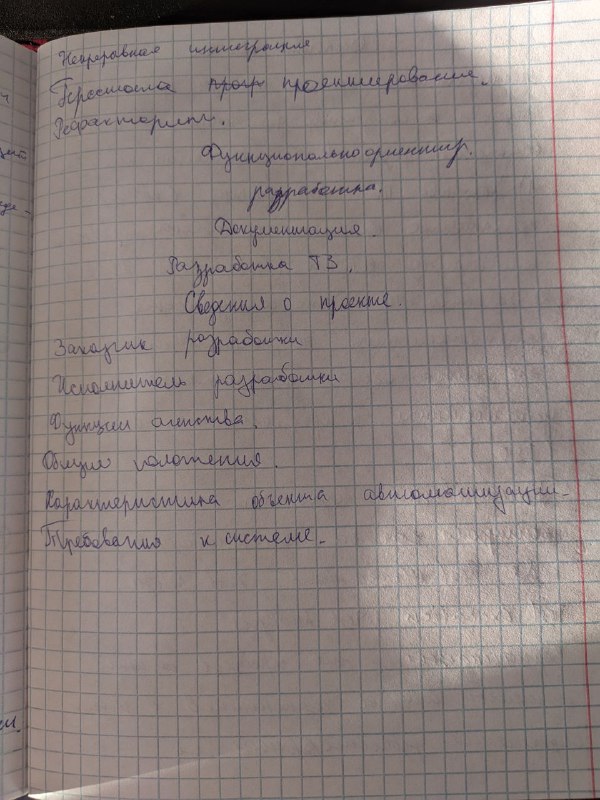 Непрерывная интеграция
Простота прогр проектирования.
Рефакторинг.
Функционально ориентир.
разработка.
Документация.
Разработка ТЗ.
Сведения о проекте.
Заказчик разработки
Исполнитель разработки
Функции агенства.
Общие положения.
Характеристика объекта автоматизации.
Требования к системе.